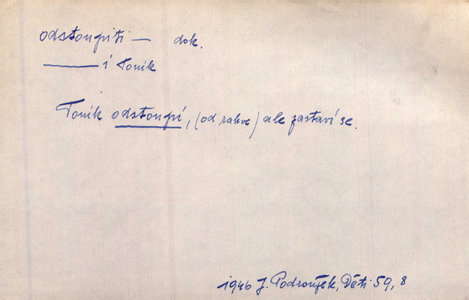 odstoupiti — dok.
——— i Toník
Toník odstoupí, (od ) ale zastaví se.
1946 J. Podroužek, Děti 59, 8